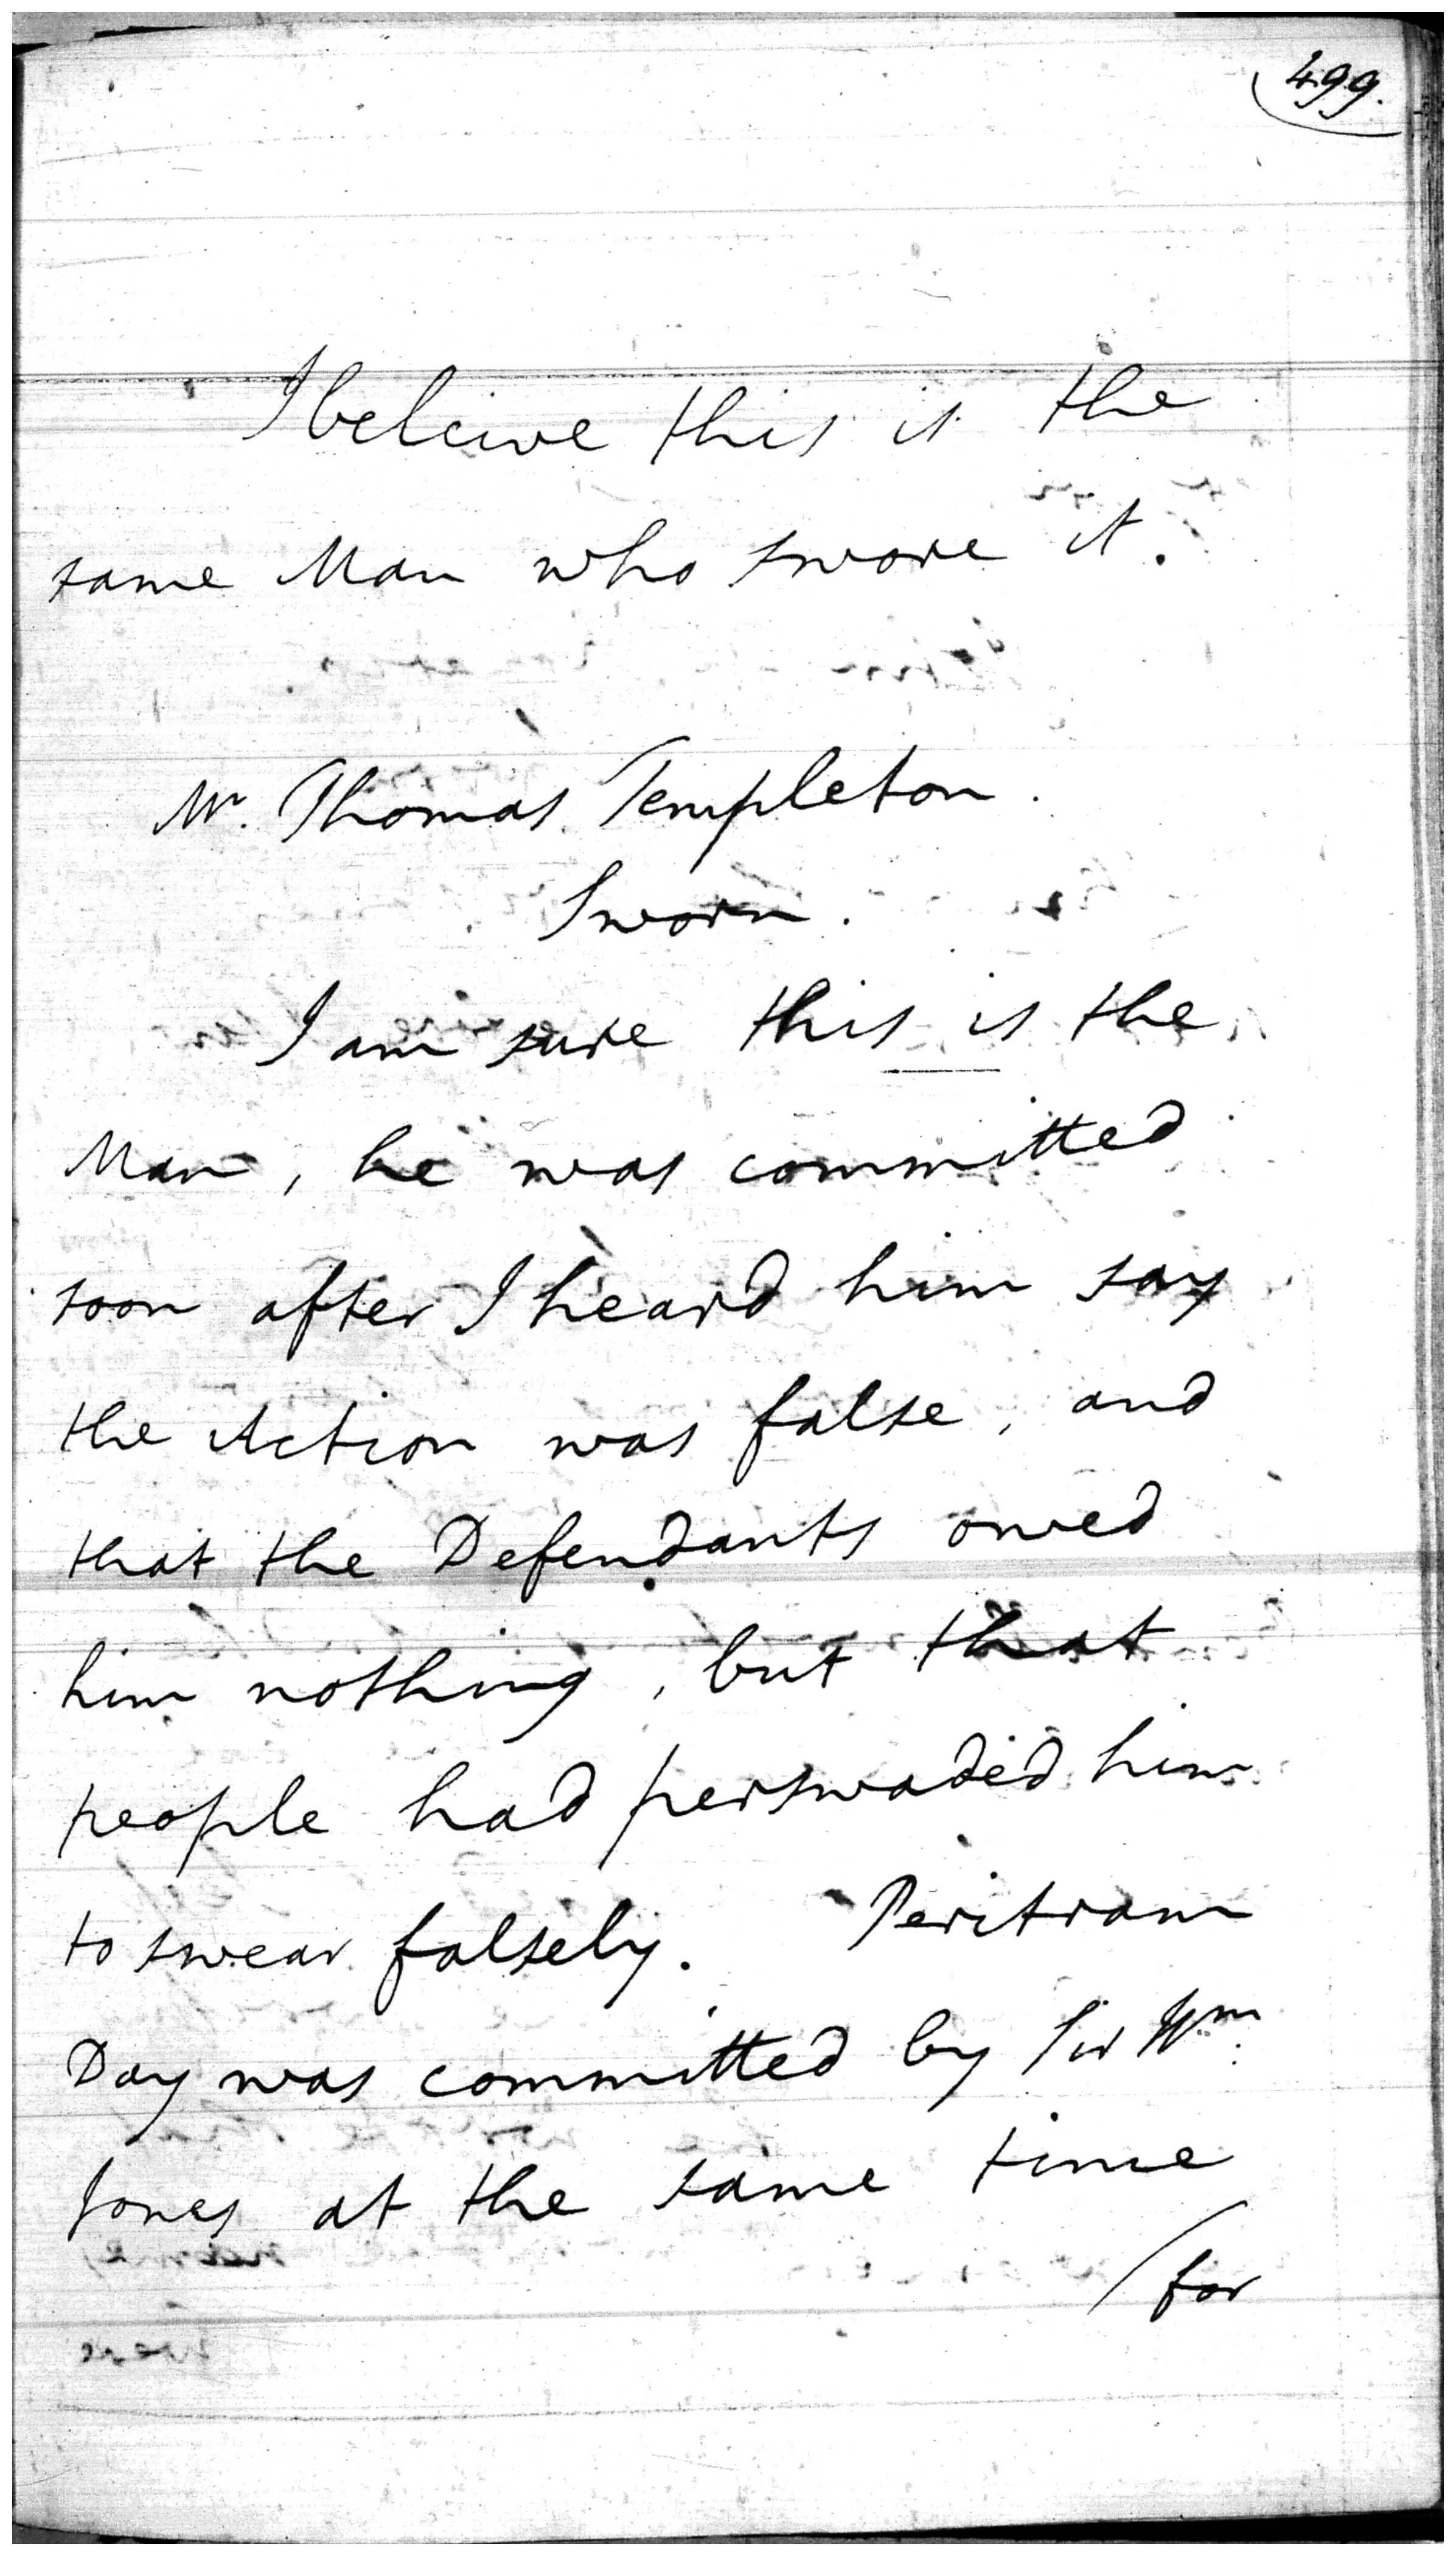 499.
I beleive this is the
same Man who swore it.
Mr. Thomas Templeton.
Sworn.
I am sure this is the
Man, he was committed
soon after I heard him say
the Action was false, and
that the Defendants owed
him nothing, but that
people had perswaded him
to swear falsely. Peritram
Day was committed by Sir Wm.
Jones at the same time
/for